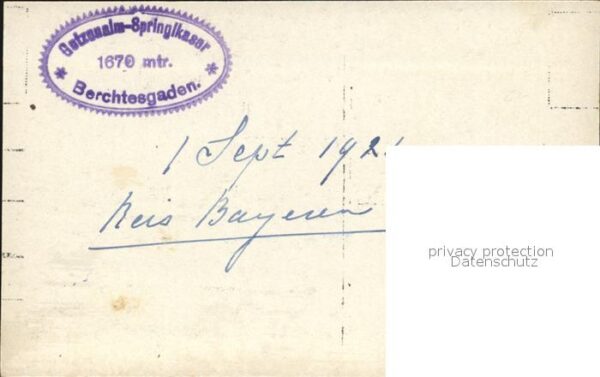 Gotzenalm-Springlkaser
1670 mtr.
* Berchtesgaden. *
1 Sept 192
Reis Bayeren
privacy protection
Datenschutz